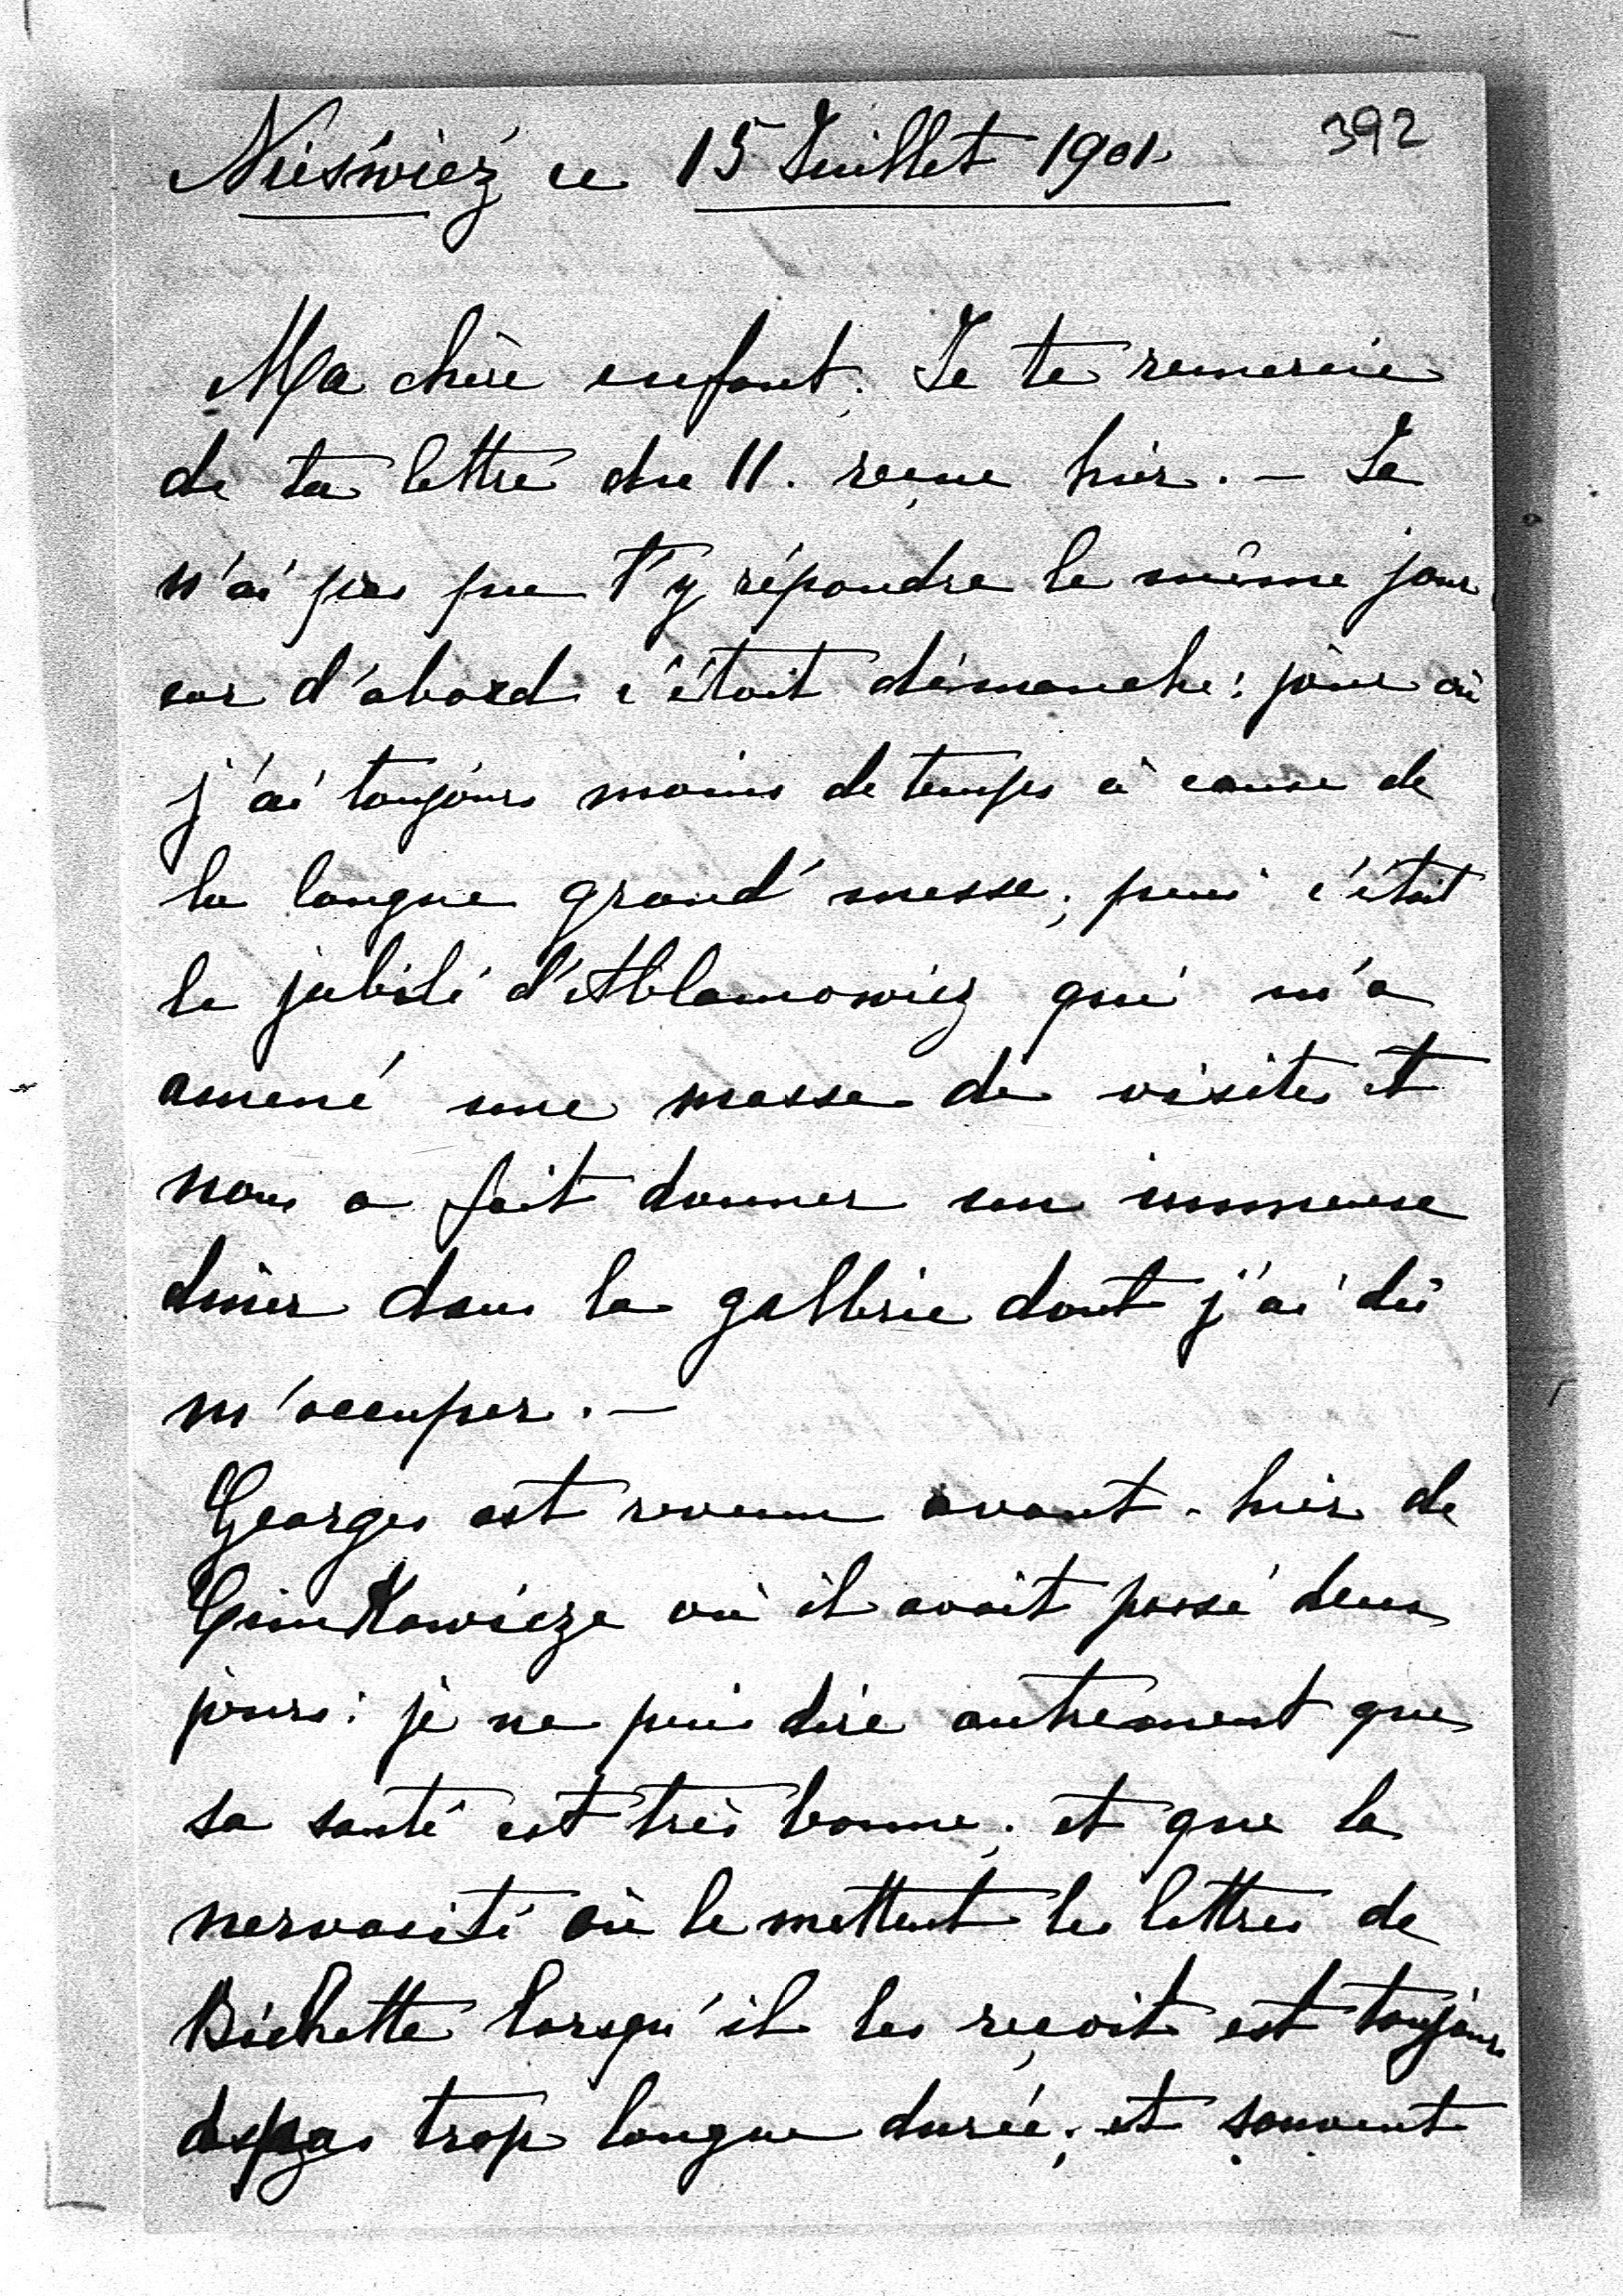 Nieśwież ce 15 Juillet 1901. 392
Ma chère enfant. Je te remercie
de ta lettre du 11. reçue hier. – Je
n'ai pas pu t'y répondre le même jour
car d'abord c'était démanche: jour où
j'ai toujours moins de temps à cause de
la longue grand'messe; puis c'était
le jubilé d'Ablamowicz qui m'a
amené une masse de visites et
nous a fait donner un immense
dîner dans la gallerie dont j'ai dû
m'occuper. –
Georges est revenu avant-hier de
où il avait passé deux
jours: je ne puis dire autrement que
sa santé est très bonne; et que la
nervosité où le mettent les lettres de
Bichette lorsqu'il les reçoit est toujours
de pas trop longue durée; et souvent